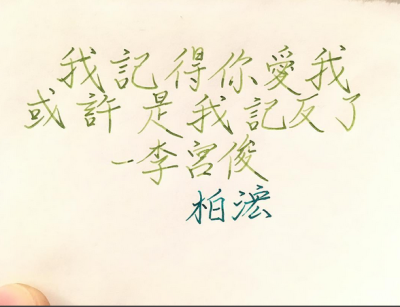 我記得你愛我
或許是我記反了
-李宮俊
柏浤